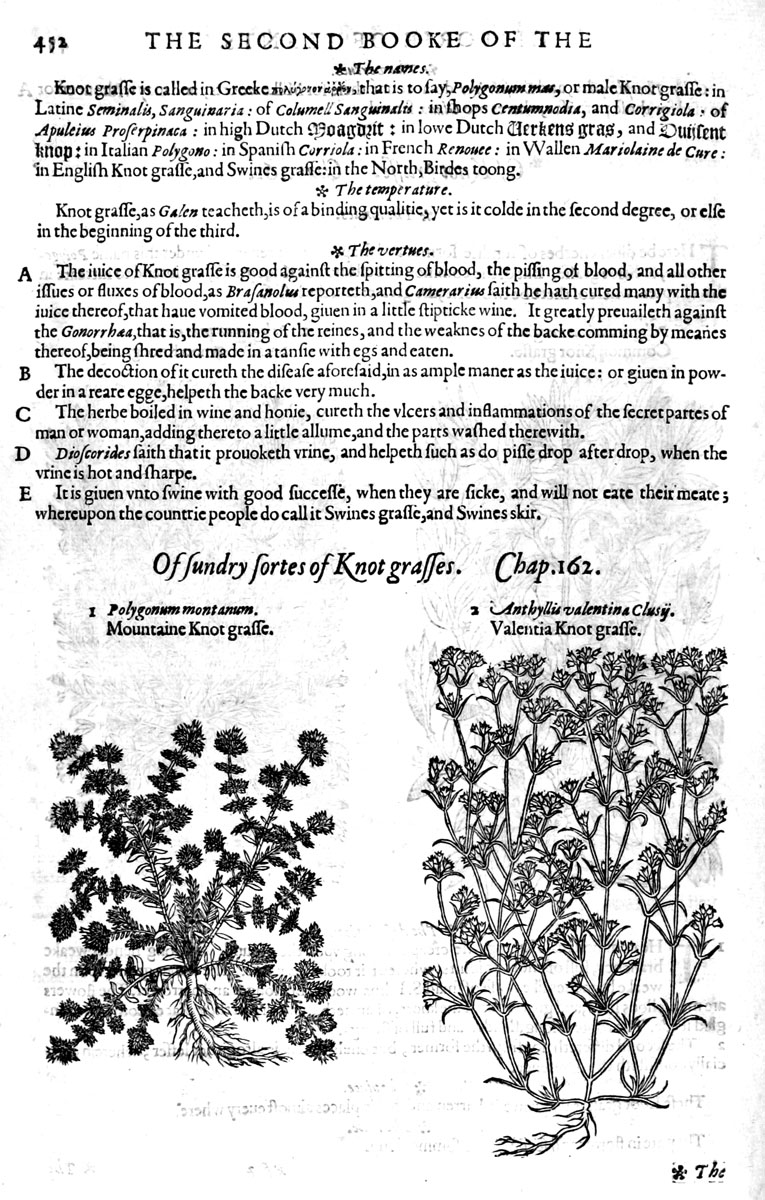 452 THE SECOND BOOKE OF THE
✻ The names.
Knot grasse is called in Greeke that is to say, Polygonum mas, or male Knot grasse: in
Latine Seminalis, Sanguinaria: of Columell Sanguinalis: in shops Centumnodia, and Corrigiola: of
Apuleius Proserpinaca: in high Dutch in lowe Dutch Uerkens gras, and Duisent
knop: in Italian Polygono: in Spanish Corriola: in French Renouee: in Wallen Mariolaine de Cure:
in English Knot grasse, and Swines grasse: in the North, Birdes toong.
✻ The temperature.
Knot grasse, as Galen teacheth, is of a binding qualitie, yet is it colde in the second degree, or else
in the beginning of the third.
✻ The vertues.
A The iuice of Knot grasse is good against the spitting of blood, the pissing of blood, and all other
issues or fluxes of blood, as Brasanolus reporteth, and Camerarius saith he hath cured many with the
iuice thereof, that haue vomited blood, giuen in a little stipticke wine. It greatly preuaileth against
the Gonorrhæa, that is, the running of the reines, and the weaknes of the backe comming by meanes
thereof, being shred and made in a tansie with egs and eaten.
B The decoction of it cureth the disease aforesaid, in as ample maner as the iuice: or giuen in pow-
der in a reare egge, helpeth the backe very much.
C The herbe boiled in wine and honie, cureth the vlcers and inflammations of the secret partes of
man or woman, adding thereto a little allume, and the parts washed therewith.
D Dioscorides saith that it prouoketh vrine, and helpeth such as do pisse drop after drop, when the
vrine is hot and sharpe.
E It is giuen vnto swine with good successe, when they are sicke, and will not eate their meate;
whereupon the countrie people do call it Swines grasse, and Swines skir.
Of sundry sortes of Knot grasses. Chap. 162.
1 Polygonum montanum.
Mountaine Knot grasse.
2 Anthyllis valentina Clusij.
Valentia Knot grasse.
✻ The